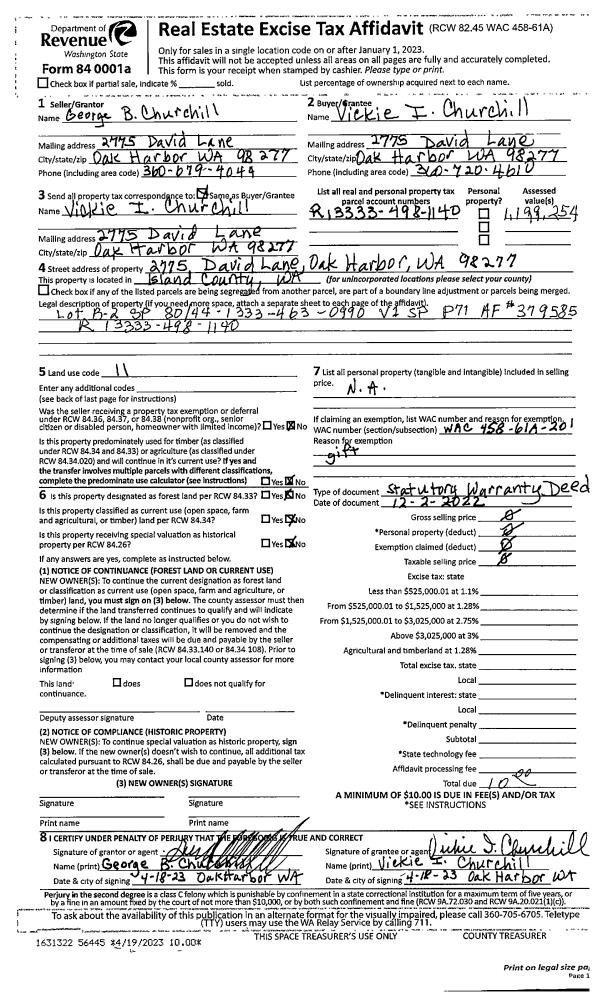 Department of
Revenue
Washington State
Form 84 0001a
Real Estate Excise Tax Affidavit (RCW 82.45 WAC 458-61A)
Only for sales in a single location code on or after January 1, 2023.
This affidavit will not be accepted unless all areas on all pages are fully and accurately completed.
This form is your receipt when stamped by cashier. Please type or print.
Check box if partial sale, indicate % sold. List percentage of ownership acquired next to each name.
1 Seller/Grantor
Name George B. Churchill
Mailing address 2775 David Lane
City/state/zip Oak Harbor WA 98277
Phone (including area code) 360-679-4044
2 Buyer/Grantee
Name Vickie I. Churchill
Mailing address 2775 David Lane
City/state/zip Oak Harbor WA 98277
Phone (including area code) 360-720-4610
3 Send all property tax correspondence to: Same as Buyer/Grantee
Name Vickie I. Churchill
Mailing address 2775 David Lane
City/state/zip Oak Harbor WA 98277
List all real and personal property tax
parcel account numbers
Personal
property?
Assessed
value(s)
R13333-498-1140 1,199,254
4 Street address of property 2775 David Lane, Oak Harbor, WA 98277
This property is located in Island County, WA (for unincorporated locations please select your county)
Check box if any of the listed parcels are being segregated from another parcel, are part of a boundary line adjustment or parcels being merged.
Legal description of property (if you need more space, attach a separate sheet to each page of the affidavit).
Lot B-2 SP 80/44-1333-463-0990 V1 SP P71 AF #379585
R 13333-498-1140
5 Land use code 11
Enter any additional codes
(see back of last page for instructions)
Was the seller receiving a property tax exemption or deferral
under RCW 84.36, 84.37, or 84.38 (nonprofit org., senior
citizen or disabled person, homeowner with limited income)? Yes No
Is this property predominately used for timber (as classified
under RCW 84.34 and 84.33) or agriculture (as classified
under RCW 84.34.020) and will continue in it's current use? If yes and
the transfer involves multiple parcels with different classifications,
complete the predominate use calculator (see instructions) Yes No
6 Is this property designated as forest land per RCW 84.33? Yes No
Is this property classified as current use (open space, farm
and agricultural, or timber) land per RCW 84.34? Yes No
Is this property receiving special valuation as historical
property per RCW 84.26? Yes No
If any answers are yes, complete as instructed below.
(1) NOTICE OF CONTINUANCE (FOREST LAND OR CURRENT USE)
NEW OWNER(S): To continue the current designation as forest land
or classification as current use (open space, farm and agriculture, or
timber) land, you must sign on (3) below. The county assessor must then
determine if the land transferred continues to qualify and will indicate
by signing below. If the land no longer qualifies or you do not wish to
continue the designation or classification, it will be removed and the
compensating or additional taxes will be due and payable by the seller
or transferor at the time of sale (RCW 84.33.140 or 84.34.108). Prior to
signing (3) below, you may contact your local county assessor for more
information
This land: does does not qualify for
continuance.
Deputy assessor signature Date
(2) NOTICE OF COMPLIANCE (HISTORIC PROPERTY)
NEW OWNER(S): To continue special valuation as historic property, sign
(3) below. If the new owner(s) doesn't wish to continue, all additional tax
calculated pursuant to RCW 84.26, shall be due and payable by the seller
or transferor at the time of sale.
(3) NEW OWNER(S) SIGNATURE
Signature Signature
Print name Print name
7 List all personal property (tangible and intangible) included in selling
price.
N.A.
If claiming an exemption, list WAC number and reason for exemption.
WAC number (section/subsection) WAC 458-61A-201
Reason for exemption
gift
Type of document Statutory Warranty Deed
Date of document 12-2-2022
Gross selling price 0
*Personal property (deduct) 0
Exemption claimed (deduct) 0
Taxable selling price 0
Excise tax: state
Less than $525,000.01 at 1.1%
From $525,000.01 to $1,525,000 at 1.28%
From $1,525,000.01 to $3,025,000 at 2.75%
Above $3,025,000 at 3%
Agricultural and timberland at 1.28%
Total excise tax. state
Local
*Delinquent interest: state
Local
*Delinquent penalty
Subtotal
*State technology fee
Affidavit processing fee
Total due 10 00
A MINIMUM OF $10.00 IS DUE IN FEE(S) AND/OR TAX
*SEE INSTRUCTIONS
8 I CERTIFY UNDER PENALTY OF PERJURY THAT THE FOREGOING IS TRUE AND CORRECT
Signature of grantor or agent
Name (print) George B. Churchill
Date & city of signing 4-18-23 Oak Harbor WA
Signature of grantee or agent Vickie I. Churchill
Name (print) Vickie I. Churchill
Date & city of signing 4-18-23 Oak Harbor WA
Perjury in the second degree is a class C felony which is punishable by confinement in a state correctional institution for a maximum term of five years, or
by a fine in an amount fixed by the court of not more than $10,000, or by both such confinement and fine (RCW 9A.72.030 and RCW 9A.20.021(1)(c)).
To ask about the availability of this publication in an alternate format for the visually impaired, please call 360-705-6705. Teletype
(TTY) users may use the WA Relay Service by calling 711.
THIS SPACE TREASURER'S USE ONLY COUNTY TREASURER
1631322 56445 *4/19/2023 10.00*
Print on legal size pa
Page 1